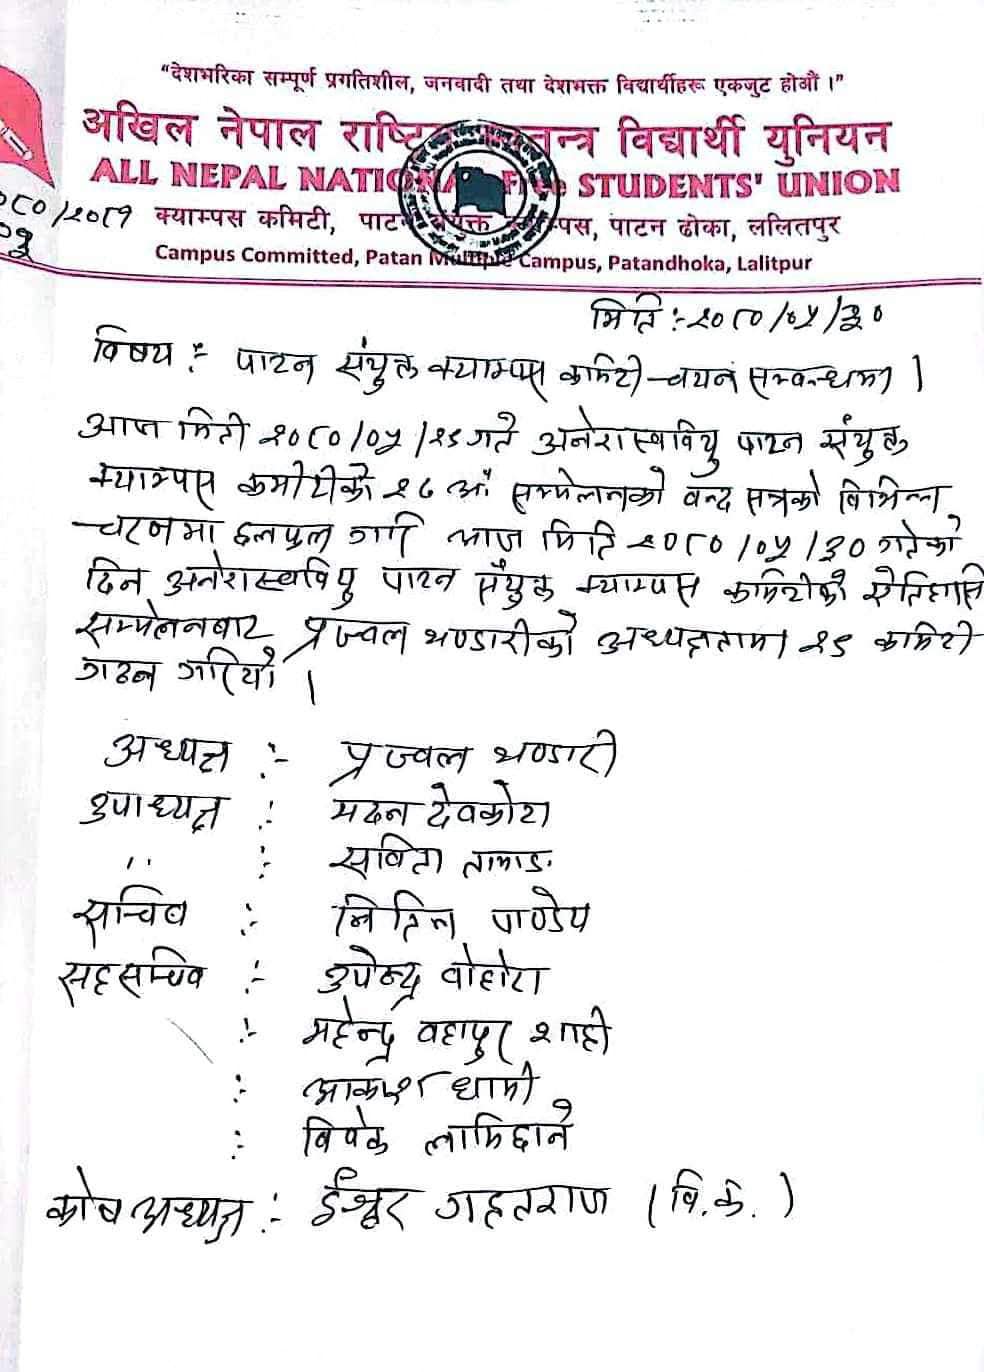 “देशभरिका सम्पूर्ण प्रगतिशील, जनवादी तथा देशभक्त विद्यार्थीहरू एकजुट होऔं ।”
अखिल नेपाल राष्ट्रिय स्वतन्त्र विद्यार्थी युनियन
ALL NEPAL NATIONAL FREE STUDENTS' UNION
०८०/२०८१ क्याम्पस कमिटी, पाटन संयुक्त क्याम्पस, पाटन ढोका, ललितपुर
Campus Committed, Patan Multiple Campus, Patandhoka, Lalitpur
मिति :- २०८०/०५/३०
विषय :- पाटन संयुक्त क्याम्पस कमिटी चयन सम्बन्धमा ।
आज मिती २०८०/०५/२९ गते अनेरास्ववियु पाटन संयुक्त
क्याम्पस कमीटीको २८ औं सम्मेलनको बन्द सत्रको विभिन्न
चरणमा छलफल गरि आज मिति २०८०/०५/३० गतेको
दिन अनेरास्ववियु पाटन संयुक्त क्याम्पस कमिटीको ऐतिहासि
सम्मेलनबाट प्रज्वल भण्डारीको अध्यक्षतामा २९ कमिटी
गठन गरियो ।
अध्यक्ष :- प्रज्वल भण्डारी
उपाध्यक्ष :- मदन देवकोटा
,, : सविता तामाङ
सचिव :- नितिन पाण्डेय
सहसचिव :- उपेन्द्र वोहोरा
:- महेन्द्र वहादुर शाही
:- आकाश धामी
:- विवेक लामिछाने
कोष अध्यक्ष :- ईश्वर गहतराज (वि.क.)